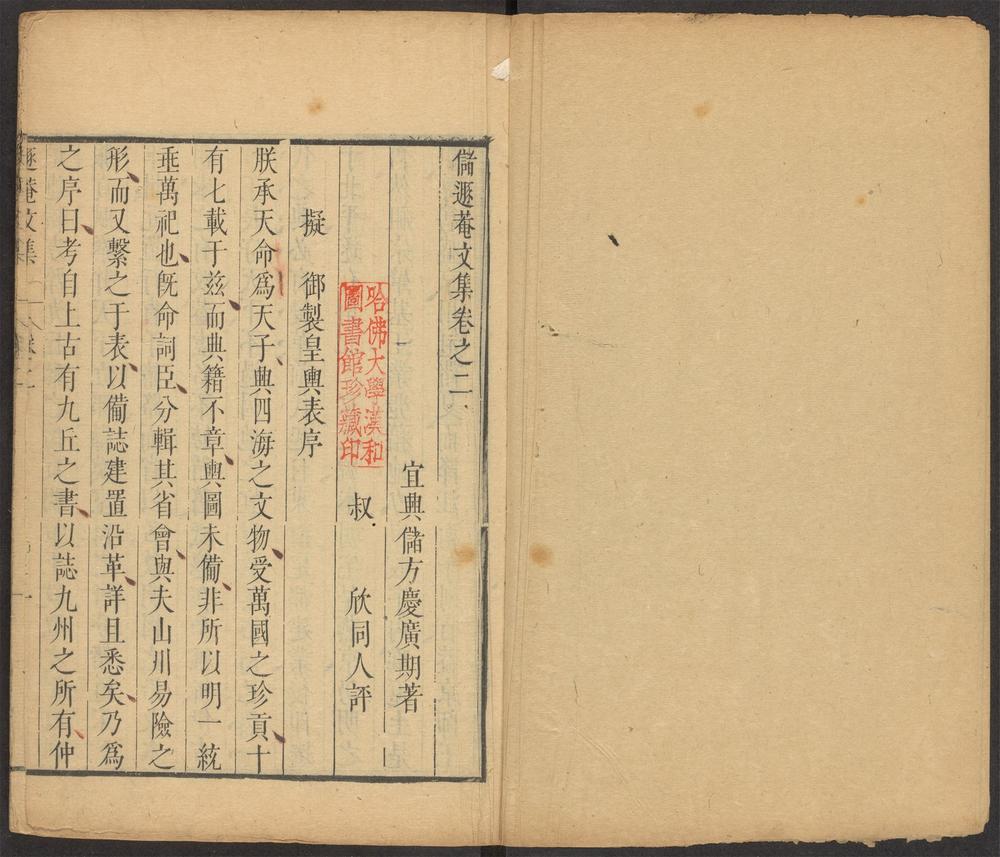 儲遯菴文集卷之二
宜興儲方慶廣期著
哈佛大學漢和
圖書館珍藏印
叔　欣同人評
擬　御製皇輿表序
朕承天命爲天子典四海之文物受萬國之珍貢十
有七載于兹而典籍不章輿圖未備非所以明一統
垂萬祀也旣命詞臣分輯其省會與夫山川易險之
形而又繫之于表以備誌建置沿革詳且悉矣乃爲
之序曰考自上古有九丘之書以誌九州之所有仲
遯菴文集　卷二